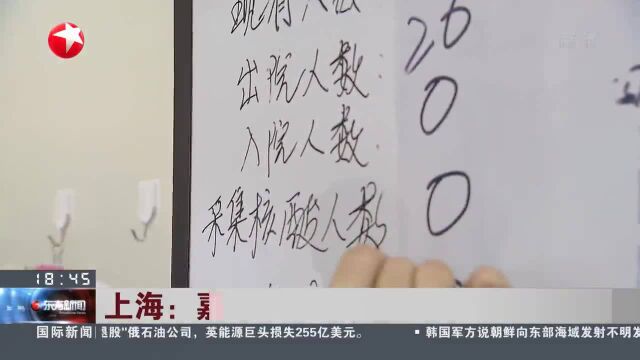 现有人数
26
出院人数：
0
入院人数：
0
采集核酸人数
0
18:45
东方新闻
上海：嘉
国际新闻
是股"俄石油公司，英能源巨头损失255亿美元。
韩国军方说朝鲜向东部海域发射不明发